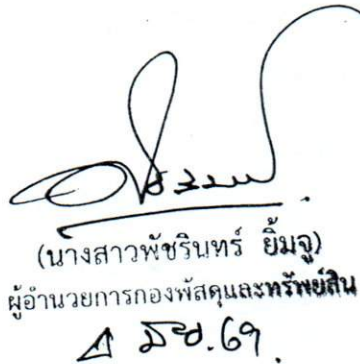 (นางสาวพัชรินทร์ ยิ้มจู)
ผู้อำนวยการกองพัสดุและทรัพย์สิน
69